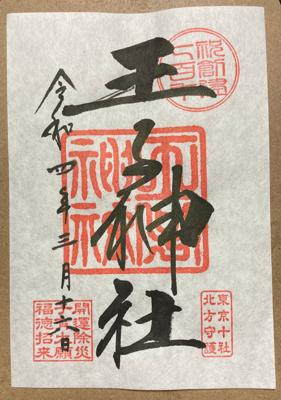 祝創建
七百年
王子神社
王子
神社
東京十社
北方守護
令和四年三月十六日
開運除災
福徳招来